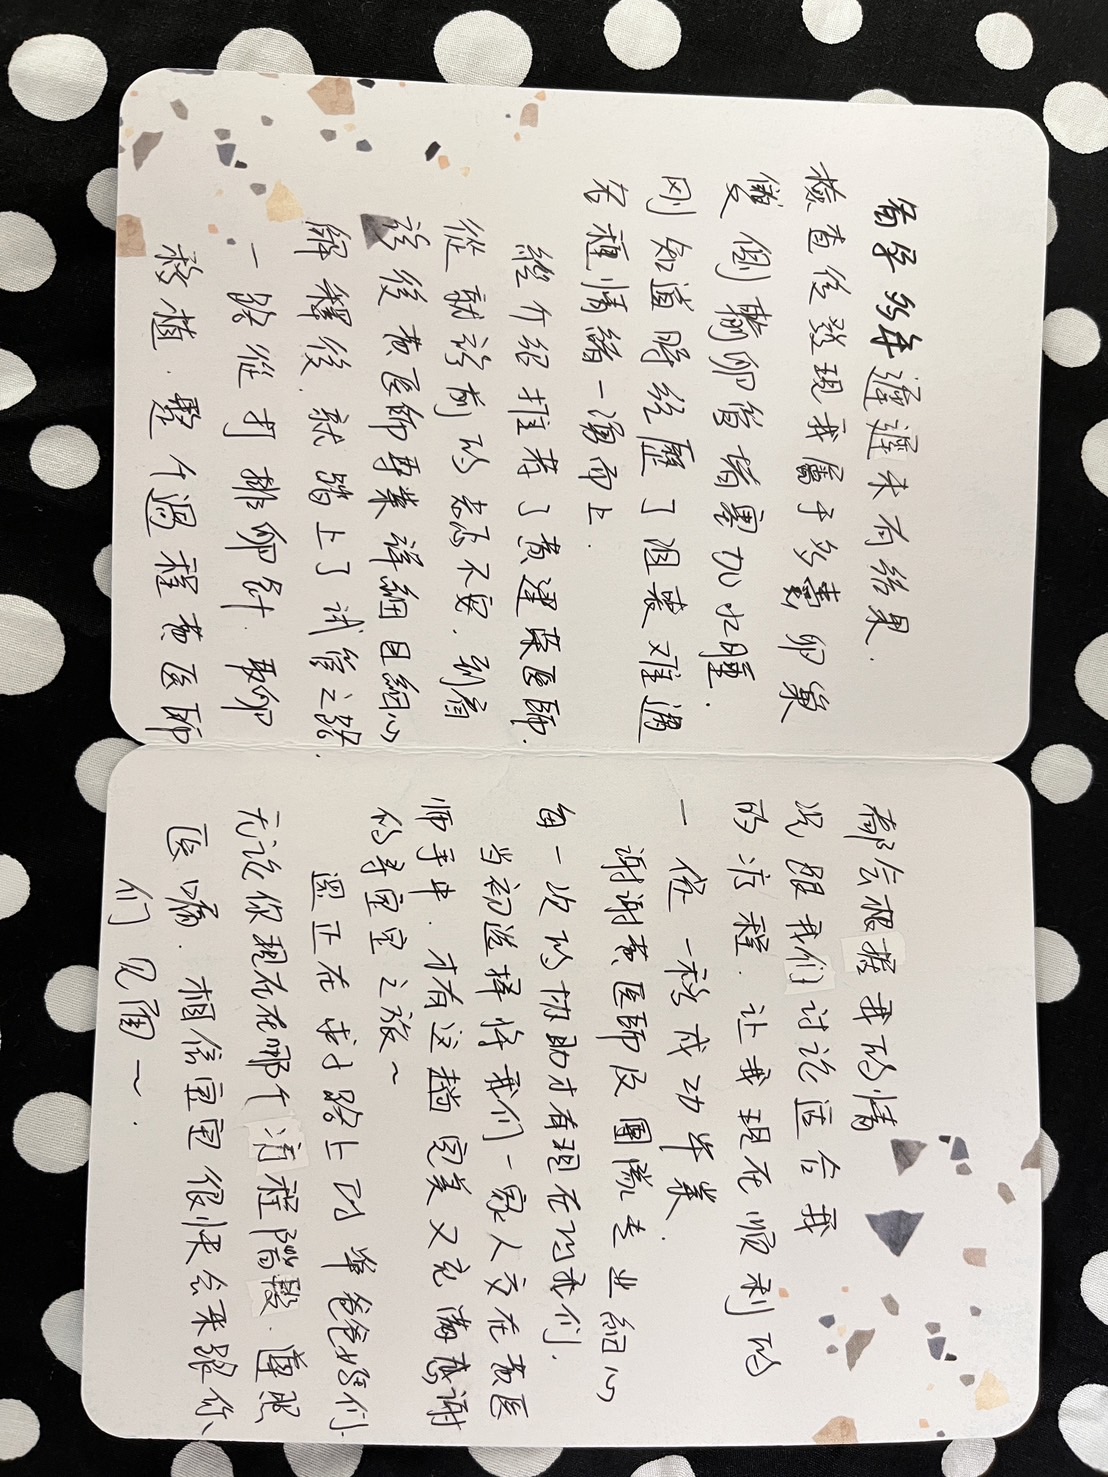 备孕多年遲遲未有結果.
檢查後發現我屬于多囊卵巢
雙側輸卵管堵塞加水腫.
刚知道時经歷了沮喪难過
各種情緒一湧而上.
經介紹推荐了黄建荣医師.
從就診前的忐忑不安.到看
診後黄医師專業詳細且細心
解釋後.就踏上了试管之路.
一路從打排卵針.取卵
移植.整个過程黄医師
都会根据我的情
况跟我们讨论适合我
的疗程.让我現在顺利的
一促一移成功毕業.
谢谢黄医師及團隊专业細心
每一次的协助才有現在的我们.
当初选择将我们一家人交在黄医
师手中.才有这趟完美又充滿感谢
的寻宝宝之旅~
還正在求子路上的準爸爸妈们.
无论你現在在哪个疗程階段.遵照
医嘱.相信宝宝很快会来跟你
们见面~.